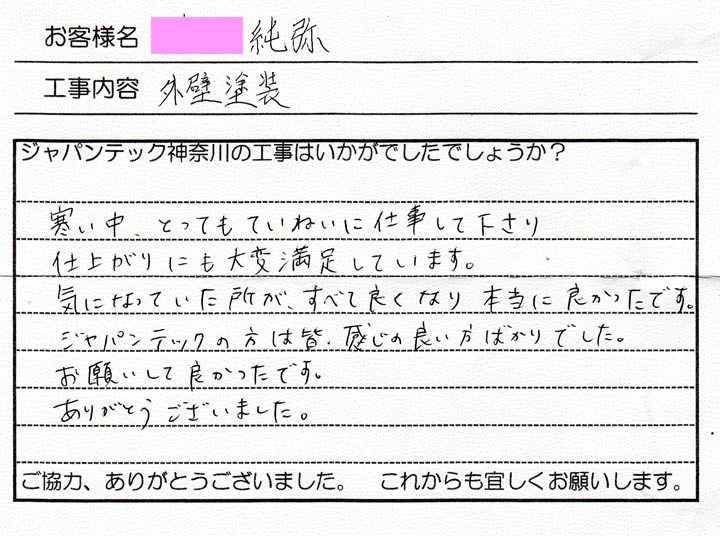 お客様名 純弥
工事内容 外壁塗装
ジャパンテック神奈川の工事はいかがでしたでしょうか？
寒い中、とってもていねいに仕事して下さり
仕上がりにも大変満足しています。
気になっていた所が、すべて良くなり 本当に良かったです。
ジャパンテックの方は皆、感じの良い方ばかりでした。
お願いして良かったです。
ありがとうございました。
ご協力、ありがとうございました。 これからも宜しくお願いします。